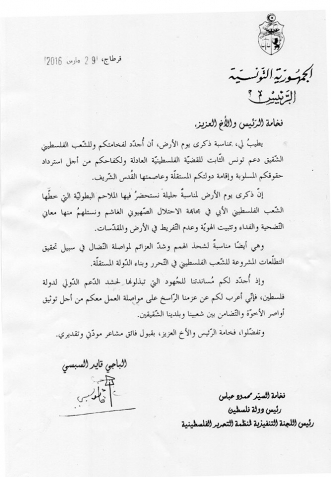 الجمهورية التونسية
الرئيس
قرطاج، 29 مارس 2016
فخامة الرئيس والأخ العزيز،
يطيب لي، بمناسبة ذكرى يوم الأرض، أن أجدّد لفخامتكم وللشعب الفلسطيني
الشقيق دعم تونس الثابت للقضيّة الفلسطينيّة العادلة ولكفاحكم من أجل استرداد
حقوقكم المسلوبة وإقامة دولتكم المستقلّة وعاصمتها القدس الشّريف.
إنّ ذكرى يوم الأرض لمناسبة جليلة نستحضر فيها الملاحم البطوليّة التي خطّها
الشّعب الفلسطيني الأبي في مجابهة الاحتلال الصّهيوني الغاشم ونستلهم منها معاني
التضحية والفداء وتثبيت الهويّة وعدم التّفريط في الأرض والمقدّسات.
وهي أيضًا مناسبة لشحذ الهمم وشدّ العزائم لمواصلة النّضال في سبيل تحقيق
التطلّعات المشروعة للشّعب الفلسطيني في التّحرر وبناء الدّولة المستقلّة.
وإذ أجدّد لكم مُساندتنا للجُهود التي تبذلونها لحشد الدّعم الدّولي لدولة
فلسطين، فإنّي أعرب لكم عن عزمنا الرّاسخ على مواصلة العمل معكم من أجل توثيق
أواصر الأخوّة والتّضامن بين شعبينا وبلدينا الشّقيقين.
وتفضّلوا، فخامة الرئيس والأخ العزيز، بقبول فائق مشاعر مودّتي وتقديري.
الباجي قايد السبسي
فخامة السيّد محمود عباس
رئيس دولة فلسطين
رئيس اللجنة التنفيذية لمنظمة التحرير الفلسطينية